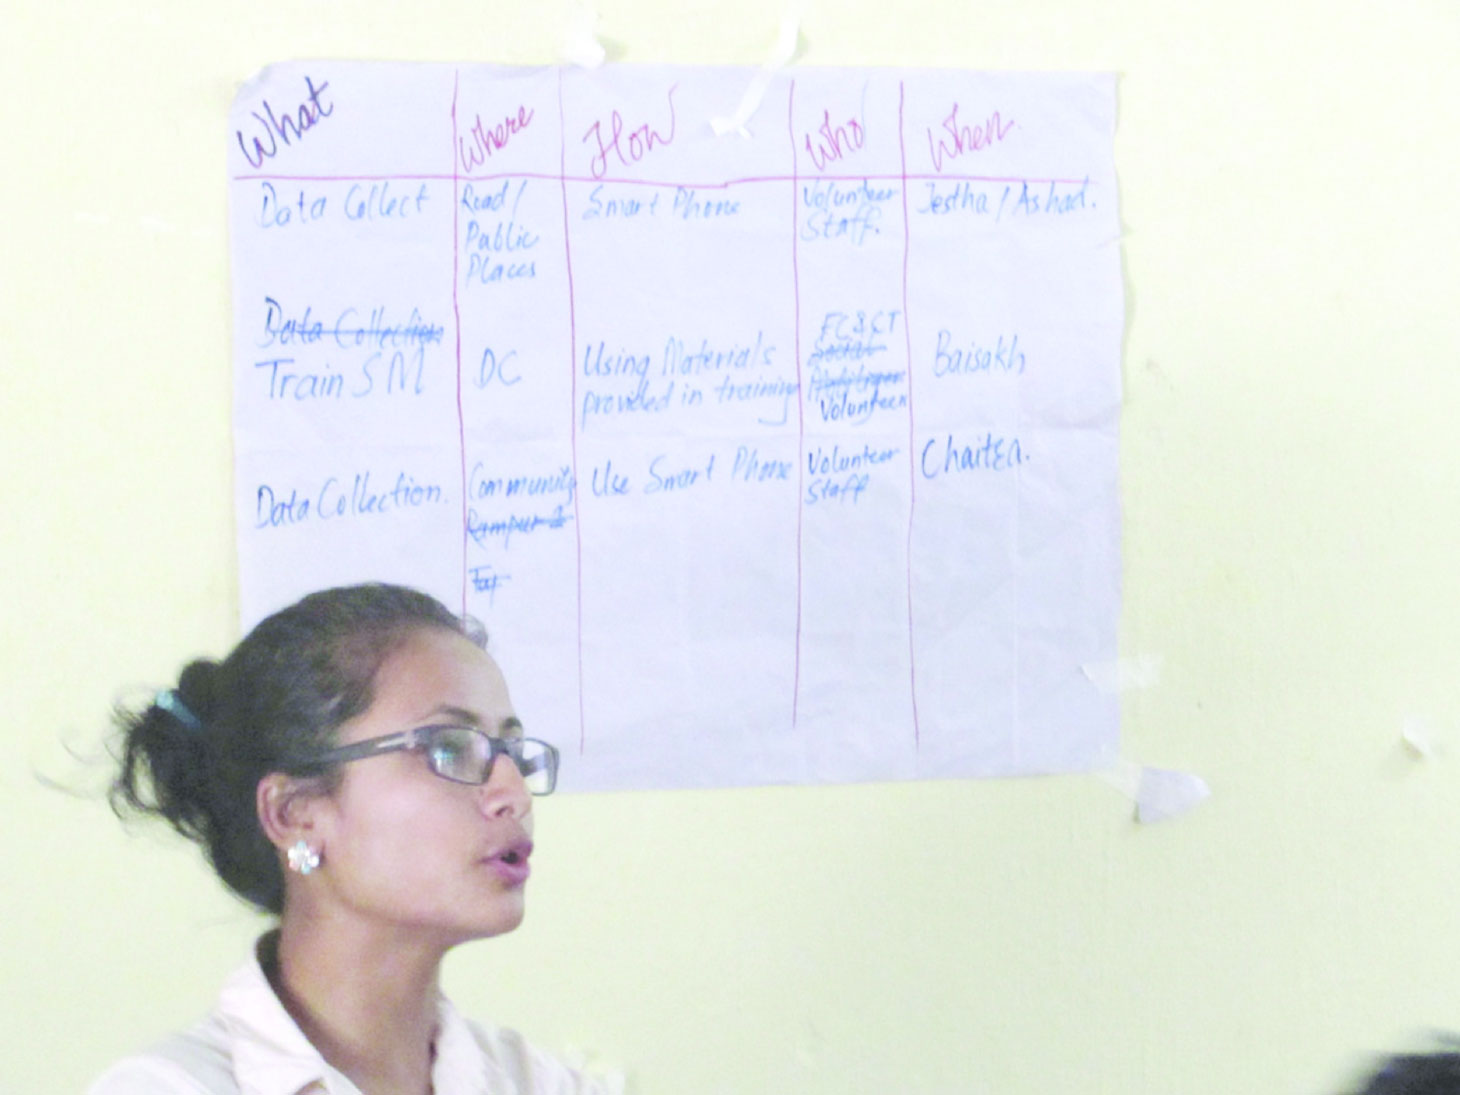 What Where How Who When
Data Collect
Road /
Public
Places
Smart Phone
Volunteer
Staff.
Jestha / Ashad.
Data Collection
Train SM
DC
Using Materials
provided in training
FC & CT
Social
Volunteer
Baisakh
Data Collection.
Community
Rampur
Use Smart Phone
Volunteer
Staff
Chaitra.